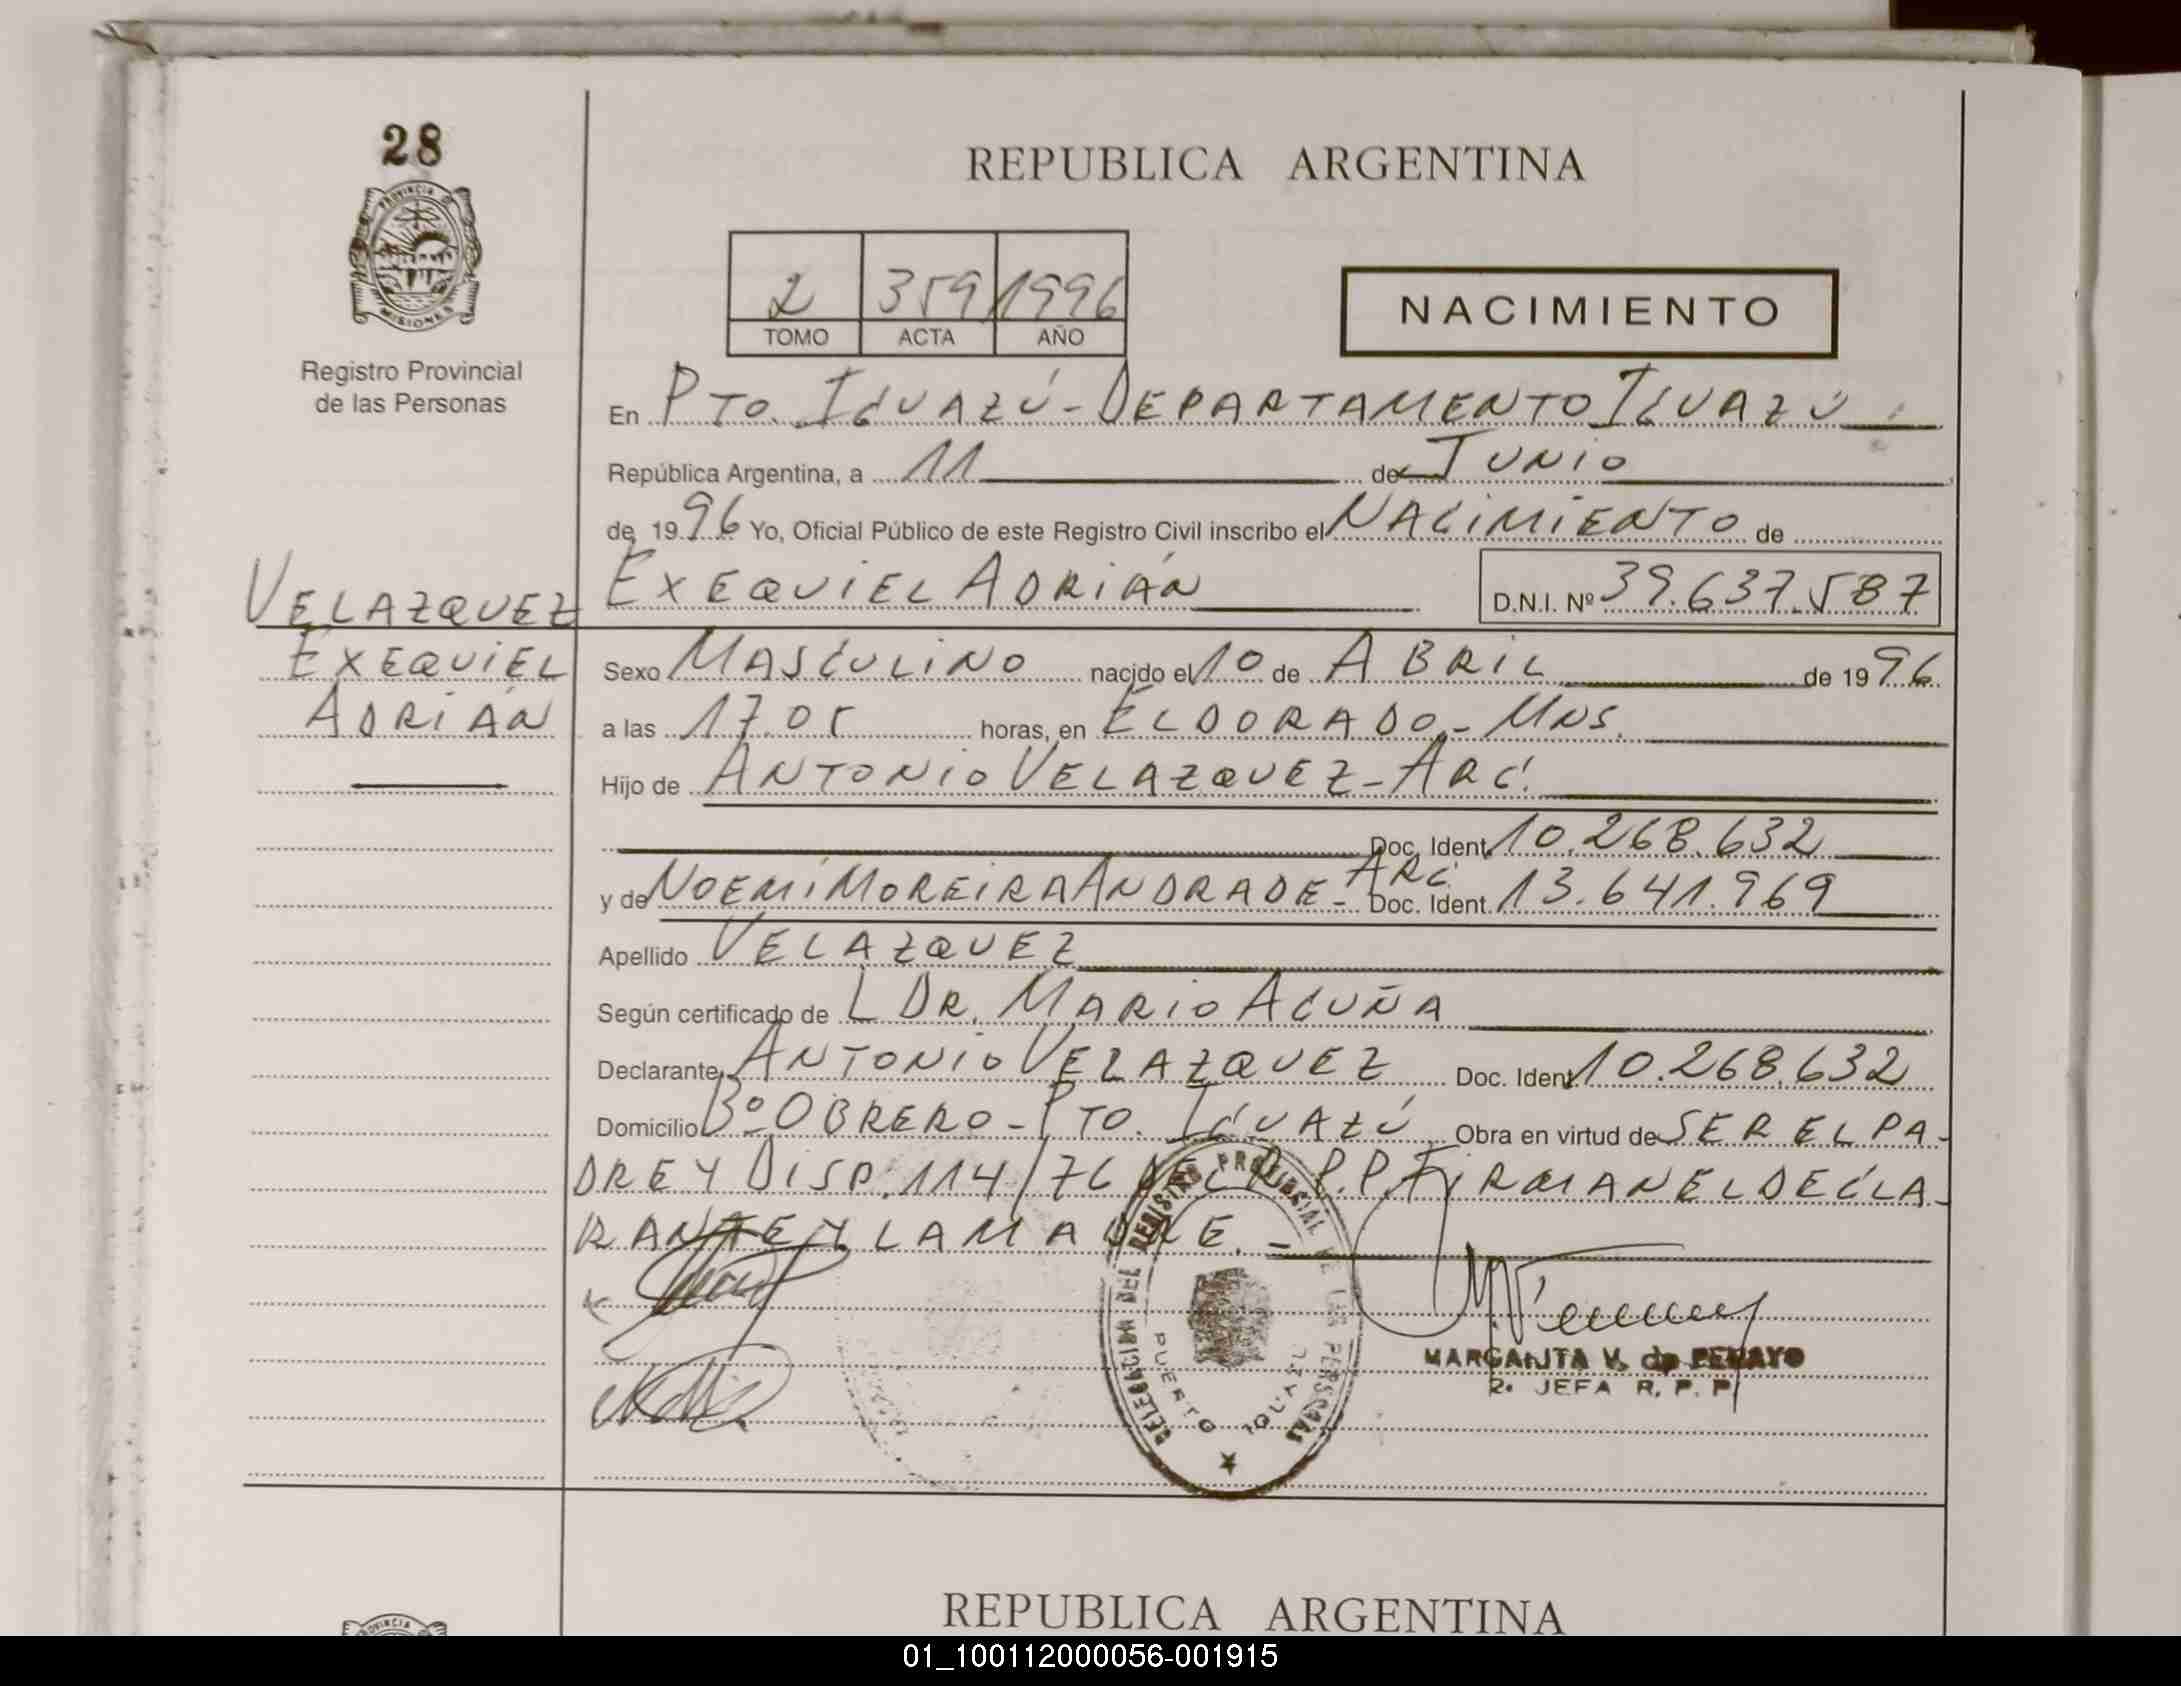 28
PROVINCIA
MISIONES
Registro Provincial
de las Personas
VELAZQUEZ
EXEQUIEL
ADRIÁN
REPUBLICA ARGENTINA
2 359 1996
TOMO ACTA AÑO
NACIMIENTO
En PTO. IGUAZÚ - DEPARTAMENTO IGUAZÚ
República Argentina, a 11 de JUNIO
de 1996 Yo, Oficial Público de este Registro Civil inscribo el NACIMIENTO de
EXEQUIEL ADRIÁN D.N.I. Nº 39.637.587
Sexo MASCULINO nacido el 10 de ABRIL de 1996
a las 17.05 horas, en ELDORADO - MNS.
Hijo de ANTONIO VELAZQUEZ - ARG.
Doc. Ident. 10.268.632
y de NOEMI MOREIRA ANDRADE - ARG. Doc. Ident. 13.641.969
Apellido VELAZQUEZ
Según certificado de L DR. MARIO ACUÑA
Declarante ANTONIO VELAZQUEZ Doc. Ident. 10.268.632
Domicilio Bº OBRERO - PTO. IGUAZÚ, Obra en virtud de SER EL PA-
DRE Y DISP. 114/76 DEL R.P.P. FIRMAN EL DECLA-
RANTE Y LA MADRE. -
DELEGACION DEL REGISTRO PROVINCIAL DE LAS PERSONAS
PUERTO IGUAZU
MARGARITA V. de PENAYO
2º JEFA R. P. P.
REPUBLICA ARGENTINA
PROVINCIA
01_100112000056-001915